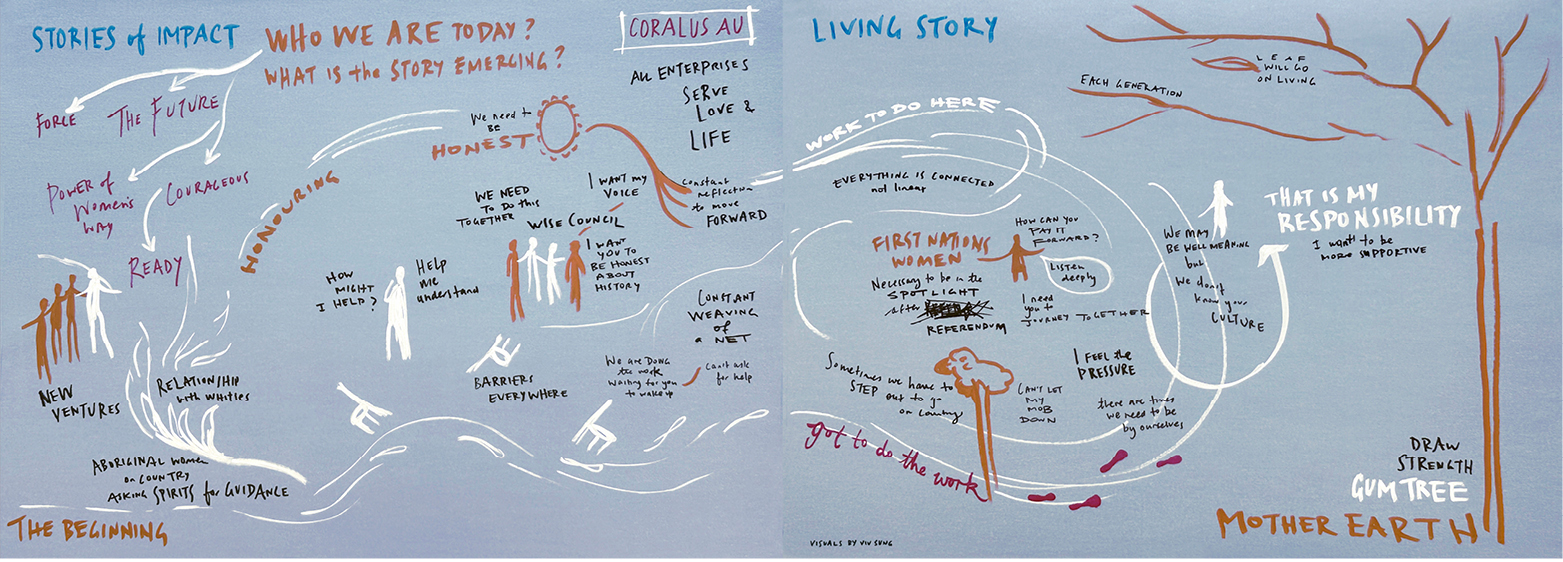 STORIES of IMPACT
WHO WE ARE TODAY?
WHAT IS the STORY EMERGING?
CORALUS AU
ALL ENTERPRISES
SERVE
LOVE &
LIFE
FORCE
THE FUTURE
POWER of
Women's
WAY
COURAGEOUS
READY
HONOURING
We need to
BE
HONEST
Constant
reflection
to move
FORWARD
WE NEED
TO DO this
TOGETHER
I WANT MY
VOICE
WISE COUNCIL
I WANT
YOU TO
BE HONEST
ABOUT
HISTORY
HOW
MIGHT
I HELP?
HELP
Me
understand
NEW
VENTURES
RELATIONSHIP
with WHITIES
BARRIERS
EVERYWHERE
CONSTANT
WEAVING
of
a NET
We are DOING
the work
Waiting for you
to wake up
Can't ask
for help
ABORIGINAL Women
on COUNTRY
ASKING SPIRITS for GUIDANCE
THE BEGINNING
LIVING STORY
WORK TO DO HERE
EVERYTHING IS CONNECTED
not linear
EACH GENERATION
LEAF
WILL GO
ON LIVING
FIRST NATIONS
WOMEN
Necessary to be in the
SPOTLIGHT
after
REFERENDUM
HOW CAN YOU
PAY IT
FORWARD?
Listen
deeply
I need
you to
JOURNEY TOGETHER
WE MAY
BE WELL MEANING
but
We don't
know your
CULTURE
THAT IS MY
RESPONSIBILITY
I want to be
more SUPPORTIVE
Sometimes we have to
STEP out to go
on Country
CAN'T LET
MY
MOB
DOWN
I FEEL the
PRESSURE
there are times
we need to be
by ourselves
got to do the work
DRAW
STRENGTH
GUM TREE
MOTHER EARTH
VISUALS BY VIV SUNG